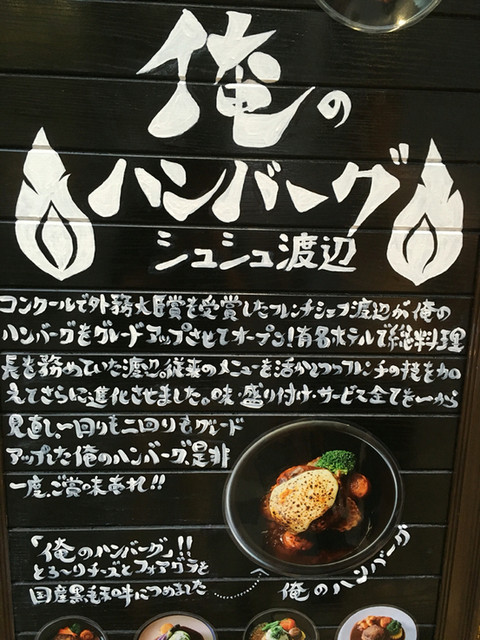 俺の
ハンバーグ
シュシュ渡辺
コンクールで外務大臣賞を受賞したフレンチシェフ渡辺が俺の
ハンバーグをグレードアップさせてオープン!有名ホテルで総料理
長を務めていた渡辺。従来のメニューを活かしつつフレンチの技を加
えてさらに進化させました。味・盛り付け・サービス全てを一から
見直し、一回りも二回りもグレード
アップした俺のハンバーグ、是非
一度、ご賞味あれ!!
「俺のハンバーグ」!!
とろ〜りチーズとフォアグラを
国産黒毛和牛につめました
俺のハンバーグ